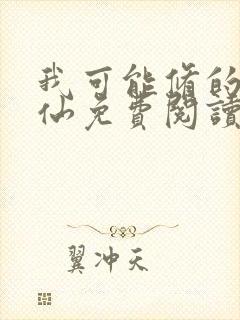 我可能修的
仙免費閱讀
翼冲天